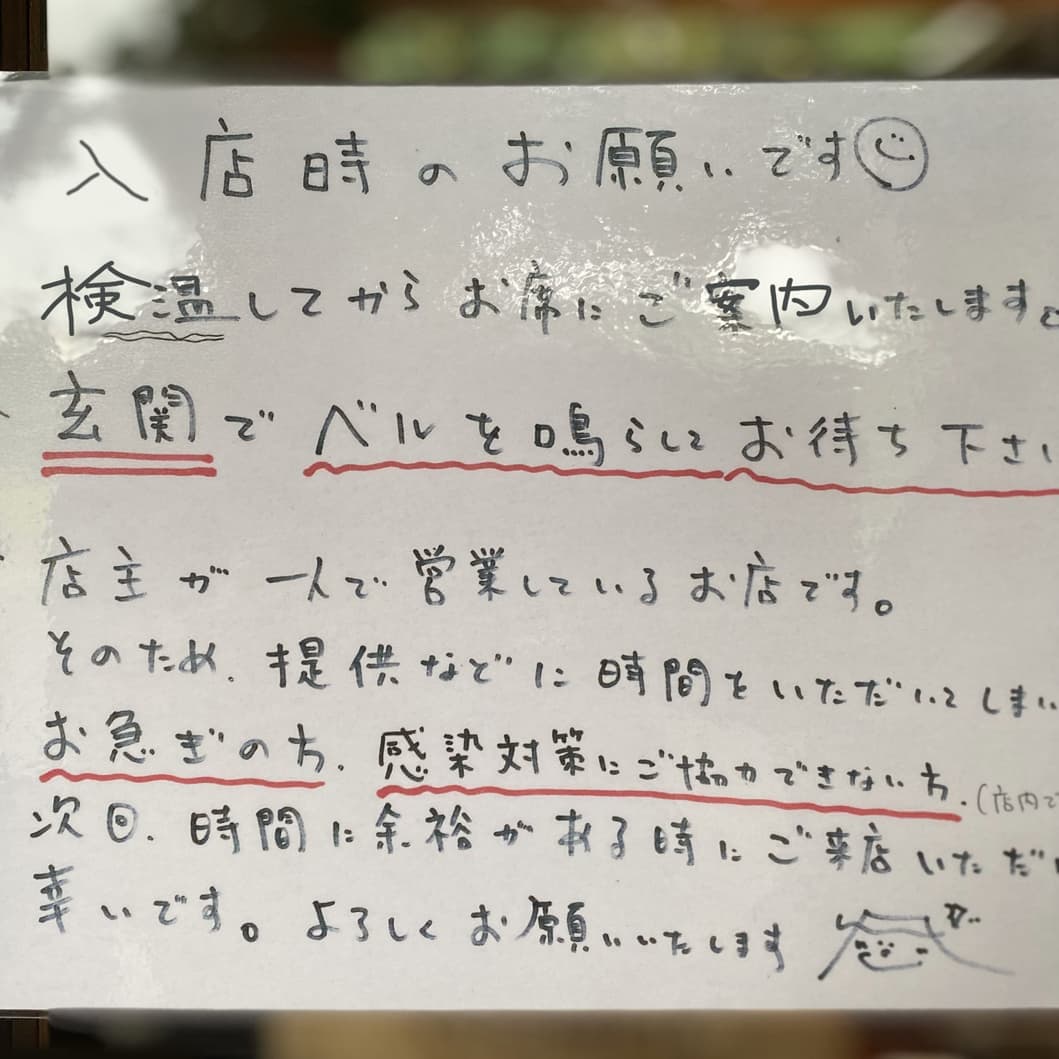 入店時のお願いです
検温してからお席にご案内いたします
玄関でベルを鳴らしてお待ち下さい
店主が一人で営業しているお店です。
そのため、提供などに時間をいただいてしまい
お急ぎの方、感染対策にご協力できない方、(店内で
次回、時間に余裕がある時にご来店いただ
幸いです。よろしくお願いいたします